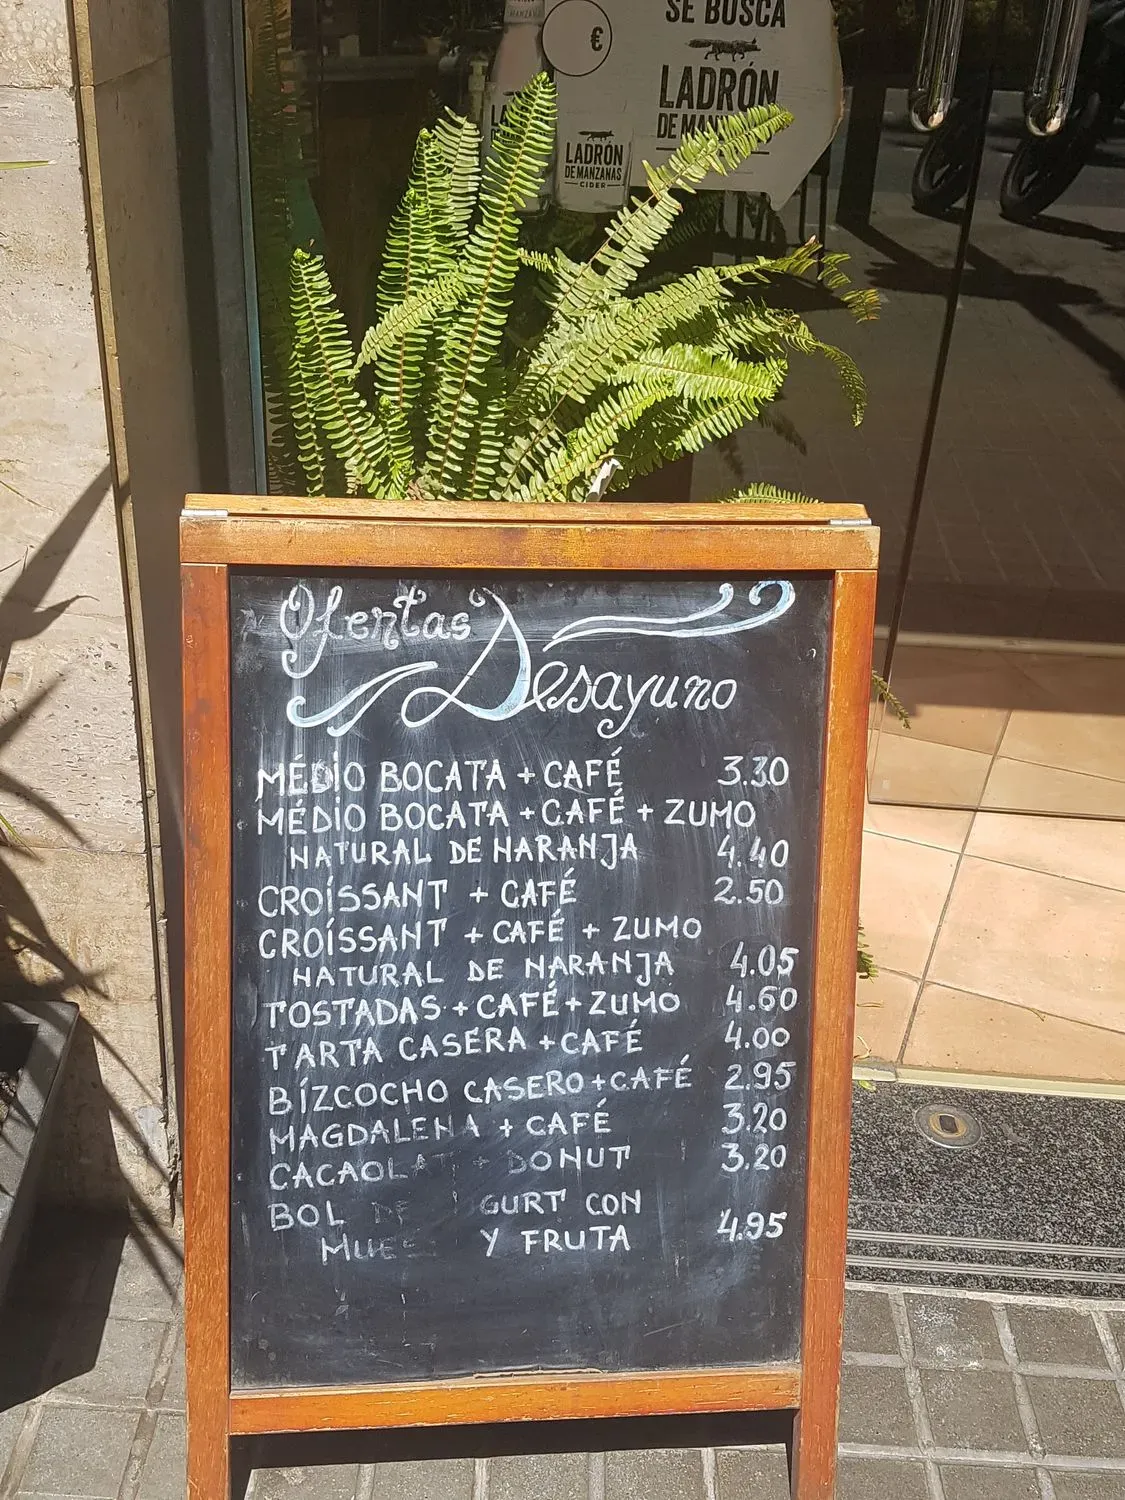 SE BUSCA
€
LADRÓN
LADRÓN
DE MANZANAS
CIDER
Ofertas
Desayuno
MÉDIO BOCATA + CAFÉ 3.30
MÉDIO BOCATA + CAFÉ + ZUMO
NATURAL DE NARANJA 4.40
CROISSANT + CAFÉ 2.50
CROISSANT + CAFÉ + ZUMO
NATURAL DE NARANJA 4.05
TOSTADAS + CAFÉ + ZUMO 4.60
TARTA CASERA + CAFÉ 4.00
BIZCOCHO CASERO + CAFÉ 2.95
MAGDALENA + CAFÉ 3.20
CACAOLAT + DONUT 3.20
BOL DE GURT CON
Y FRUTA 4.95